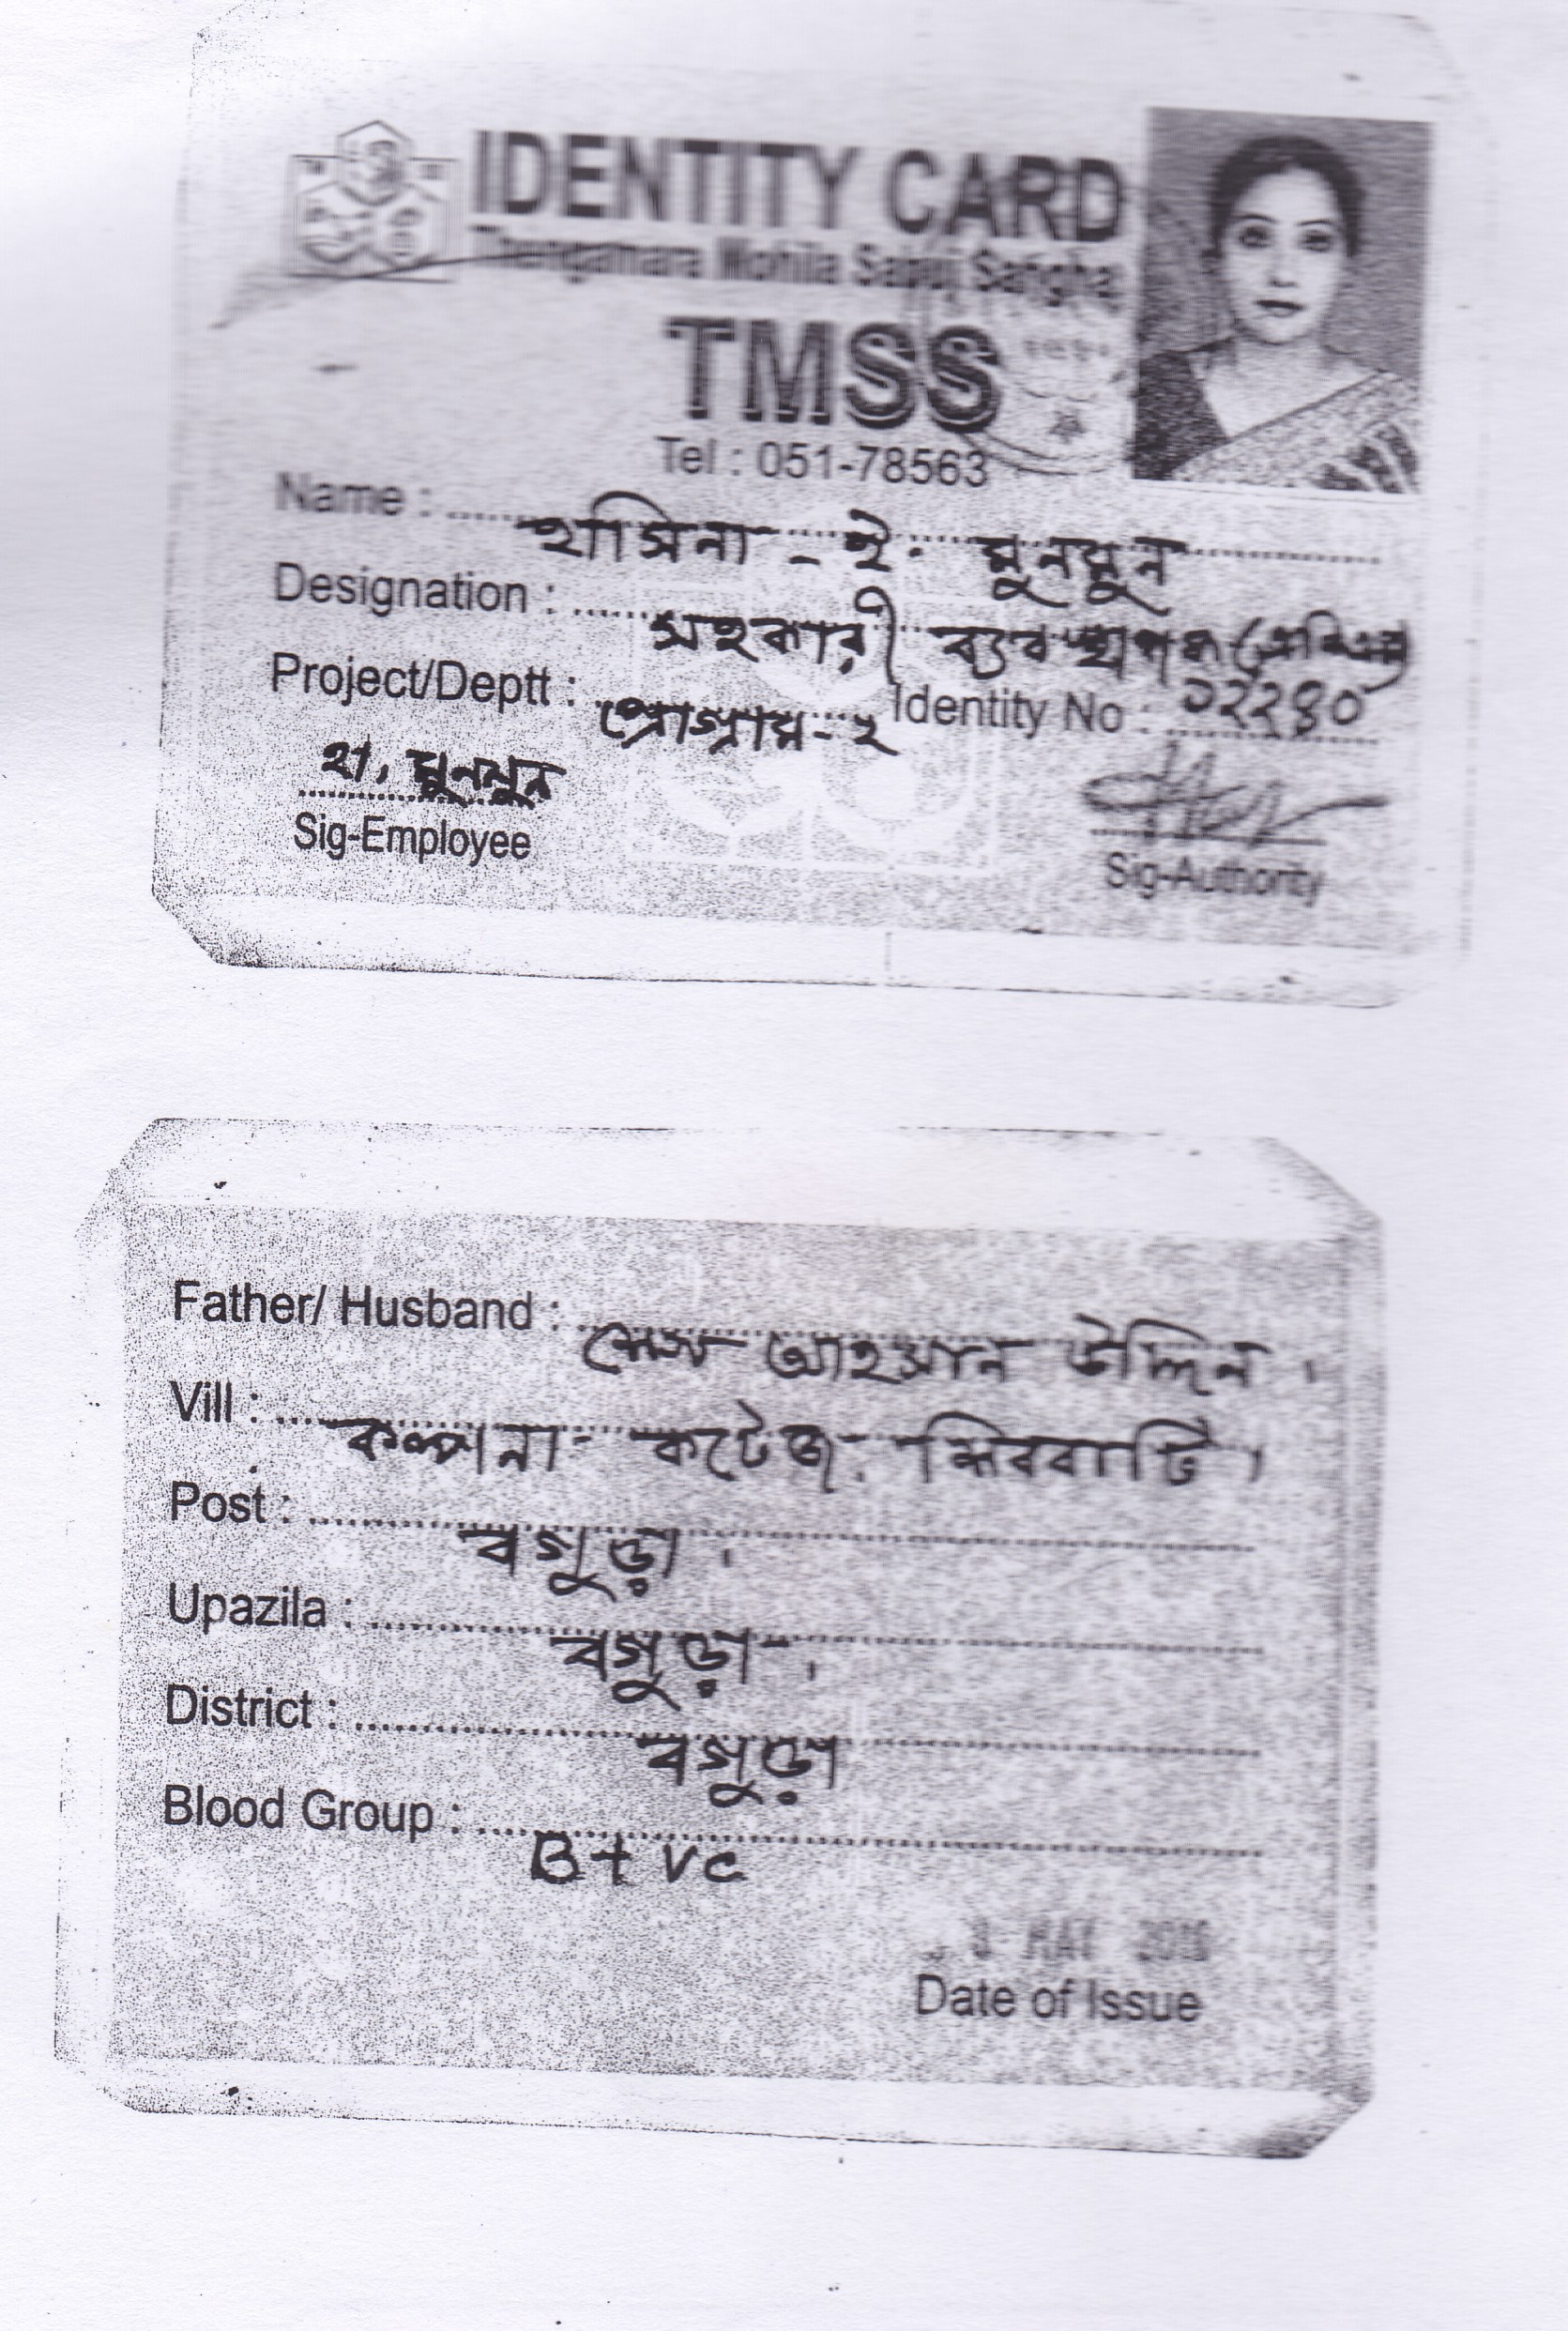 IDENTITY CARD
Thengamara Mohila Sabuj Sangha
TMSS
Tel : 051-78563
Name : হাসিনা - ই. মুনমুন
Designation : সহকারী ব্যবস্থাপক
Project/Deptt : প্রোগ্রাম-২ Identity No : ১২২৪০
হা. মুনমুন
Sig-Employee
Sig-Authority
Father/ Husband : আহসান উদ্দিন ।
Vill : কল্পনা কটেজ. শিববাটি ।
Post : বগুড়া ।
Upazila : বগুড়া ।
District : বগুড়া
Blood Group : B+ ve
MAY
Date of Issue